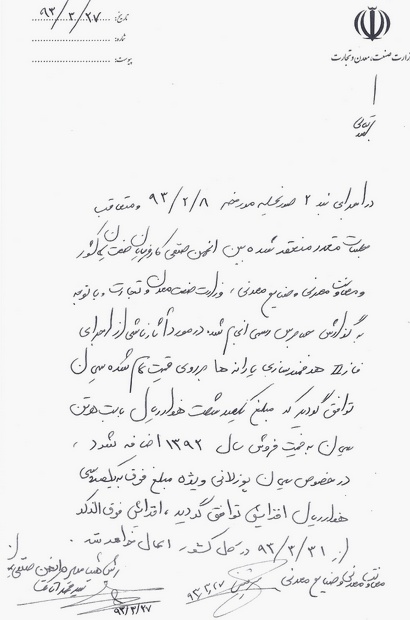 تاریخ: ۹۳/۳/۲۷
شماره:
پیوست:
وزارت صنعت، معدن و تجارت
بسمه تعالی
در اجرای بند ۲ صورتجلسه مورخه ۹۳/۲/۸ و متعاقب
جلسات متعدد منعقد شده بین انجمن صنفی کارفرمایان صنعت سیمان کشور
و معاونت معدنی و صنایع معدنی، وزارت صنعت معدن و تجارت، و با توجه
به گزارش حسابرس رسمی انجام شده در مورد آثار ناشی از اجرای
فاز II هدفمندسازی یارانه ها بر روی قیمت تمام شده سیمان
توافق گردید که مبلغ یکصد و شصت هزار ریال بابت هر تن
سیمان به قیمت فروش سال ۱۳۹۲ اضافه شود،
در خصوص سیمان پوزولانی ویژه مبلغ فوق به یکصد و سی
هزار ریال افزایش توافق گردید، افزایش فوق الذکر
از ۹۳/۳/۳۱ در کل کشور اعمال خواهد شد.
معاونت معدنی و صنایع معدنی
۹۳/۳/۲۷
رئیس هیئت مدیره انجمن صنفی
۹۳/۳/۲۷